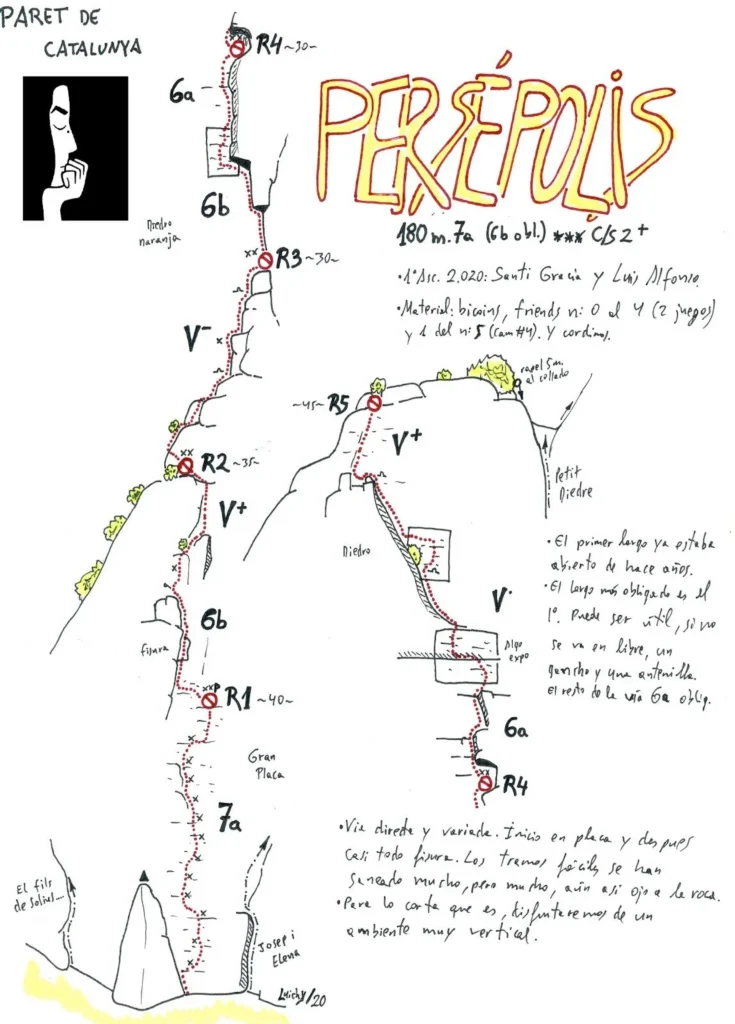 PARET DE
CATALUNYA
PERSÉPOLIS
180 m. 7a (6b obl.) *** C/S 2+
•1ª Asc. 2.020: Santi Gracia y Luis Alfonso.
•Material: bicoins, friends n: 0 al 4 (2 juegos)
y 1 del n: 5 (Cam #4). Y cordinos.
R4 ~30~
6a
6b
Diedro
naranja
R3 ~30~
V-
R2 ~35~
V+
6b
fisura
R1 ~40~
Gran
Placa
7a
El fils
de Solius...
Josep i
Elena
Luichy/20
~45~ R5
V+
rapel 5m.
al collado
Petit
Diedre
Diedro
V
Algo
expo
6a
R4
•El primer largo ya estaba
abierto de hace años.
•El largo más obligado es el
1º. Puede ser útil, si no
se va en libre, un
gancho y una antenilla.
El resto de la vía 6a oblig.
•Vía directa y variada. Inicio en placa y despues
casi todo fisura. Los tramos fáciles se han
saneado mucho, pero mucho, aún asi ojo a la roca.
•Para lo corta que es, disfrutaremos de un
ambiente muy vertical.